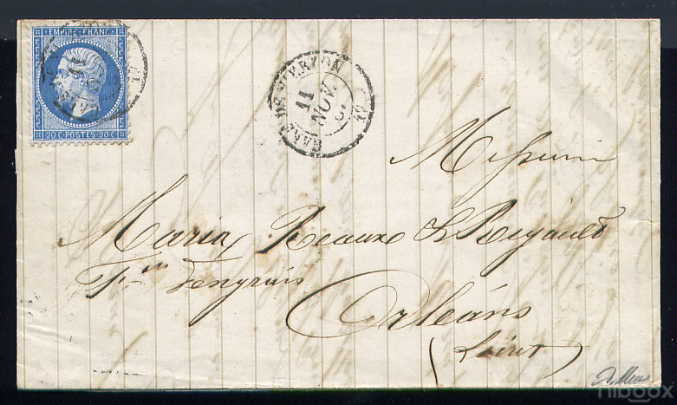 EMPIRE FRANC
20 C POSTES 20 C
GARE DE VIERZON
11
NOV.
Messieurs
Maria, Reaux & Rigault
Fts d'engrais
Orléans
(Loiret)
niboox